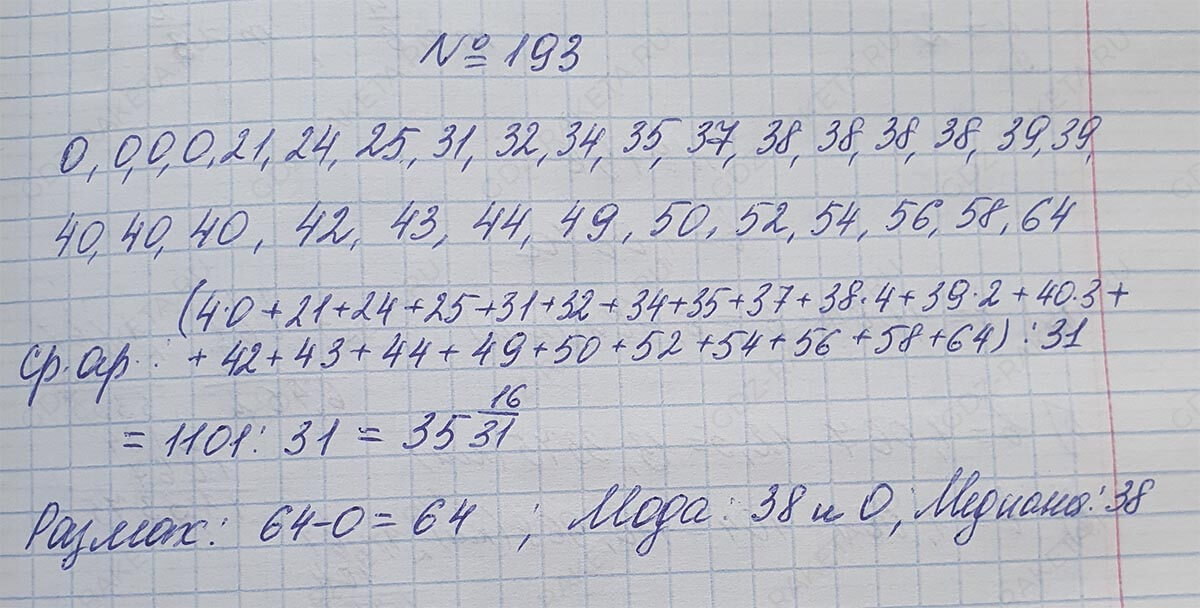 № 193
0, 0, 0, 0, 21, 24, 25, 31, 32, 34, 35, 37, 38, 38, 38, 38, 39, 39,
40, 40, 40, 42, 43, 44, 49, 50, 52, 54, 56, 58, 64
(4·0+21+24+25+31+32+34+35+37+38·4+39·2+40·3+
ср.ар.: +42+43+44+49+50+52+54+56+58+64):31
= 1101:31 = 35 16/31
Размах: 64-0=64 ; Мода: 38 и 0; Медиана: 38